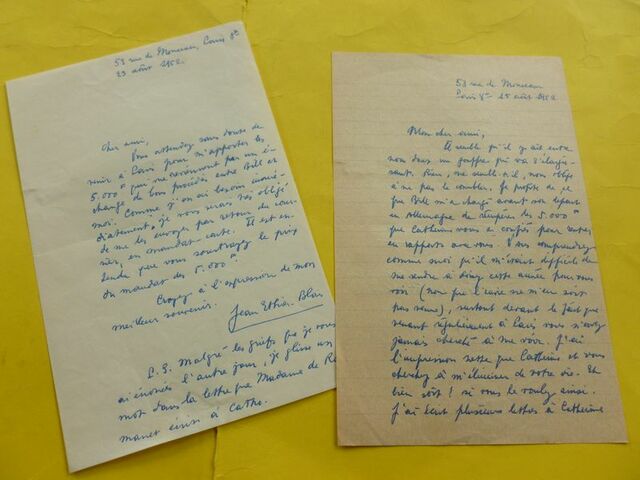 53 rue de Monceau, Paris 8e
23 août 1952.
Cher ami,
Vous attendez sans doute de
venir à Paris pour m'apporter les
5.000 que me reviennent par un é-
change de bons procédés entre Bill et
moi. Comme j'en ai besoin immé-
diatement, je vous serais très obligé
de me les envoyer par retour du cour-
rier, en mandat-carte. Il est en-
tendu que vous soustrayez le prix
du mandat des 5.000.
Croyez à l'impression de mon
meilleur souvenir.
Jean Ethier-Blais
P.S. Malgré les griefs que je vous
ai énoncés l'autre jour, je glisse un
mot dans la lettre que Madame de R
manet ainsi à Cathe.
53 rue de Monceau
Paris 8e 25 août 1952
Mon cher ami,
Il semble qu'il y ait entre
nous deux un gouffre qui va s'élargis-
sant. Rien, me semble-t-il, nous oblige
à ne pas le combler. Je profite de ce
que Bill m'a chargé avant son départ
en Allemagne de récupérer les 5.000
que Catherine vous a confiés pour entrer
en rapports avec vous. Vous comprendrez
comme moi qu'il m'était difficile de
me rendre à cette année pour vous
voir (non que l'envie ne m'en soit
pas venue), surtout devant le fait que
venant régulièrement à Paris vous n'avez
jamais cherché à me voir. J'ai
l'impression nette que Catherine et vous
cherchez à m'éliminer de votre vie. Eh
bien soit! si vous le voulez ainsi.
J'ai écrit plusieurs lettres à Catherine